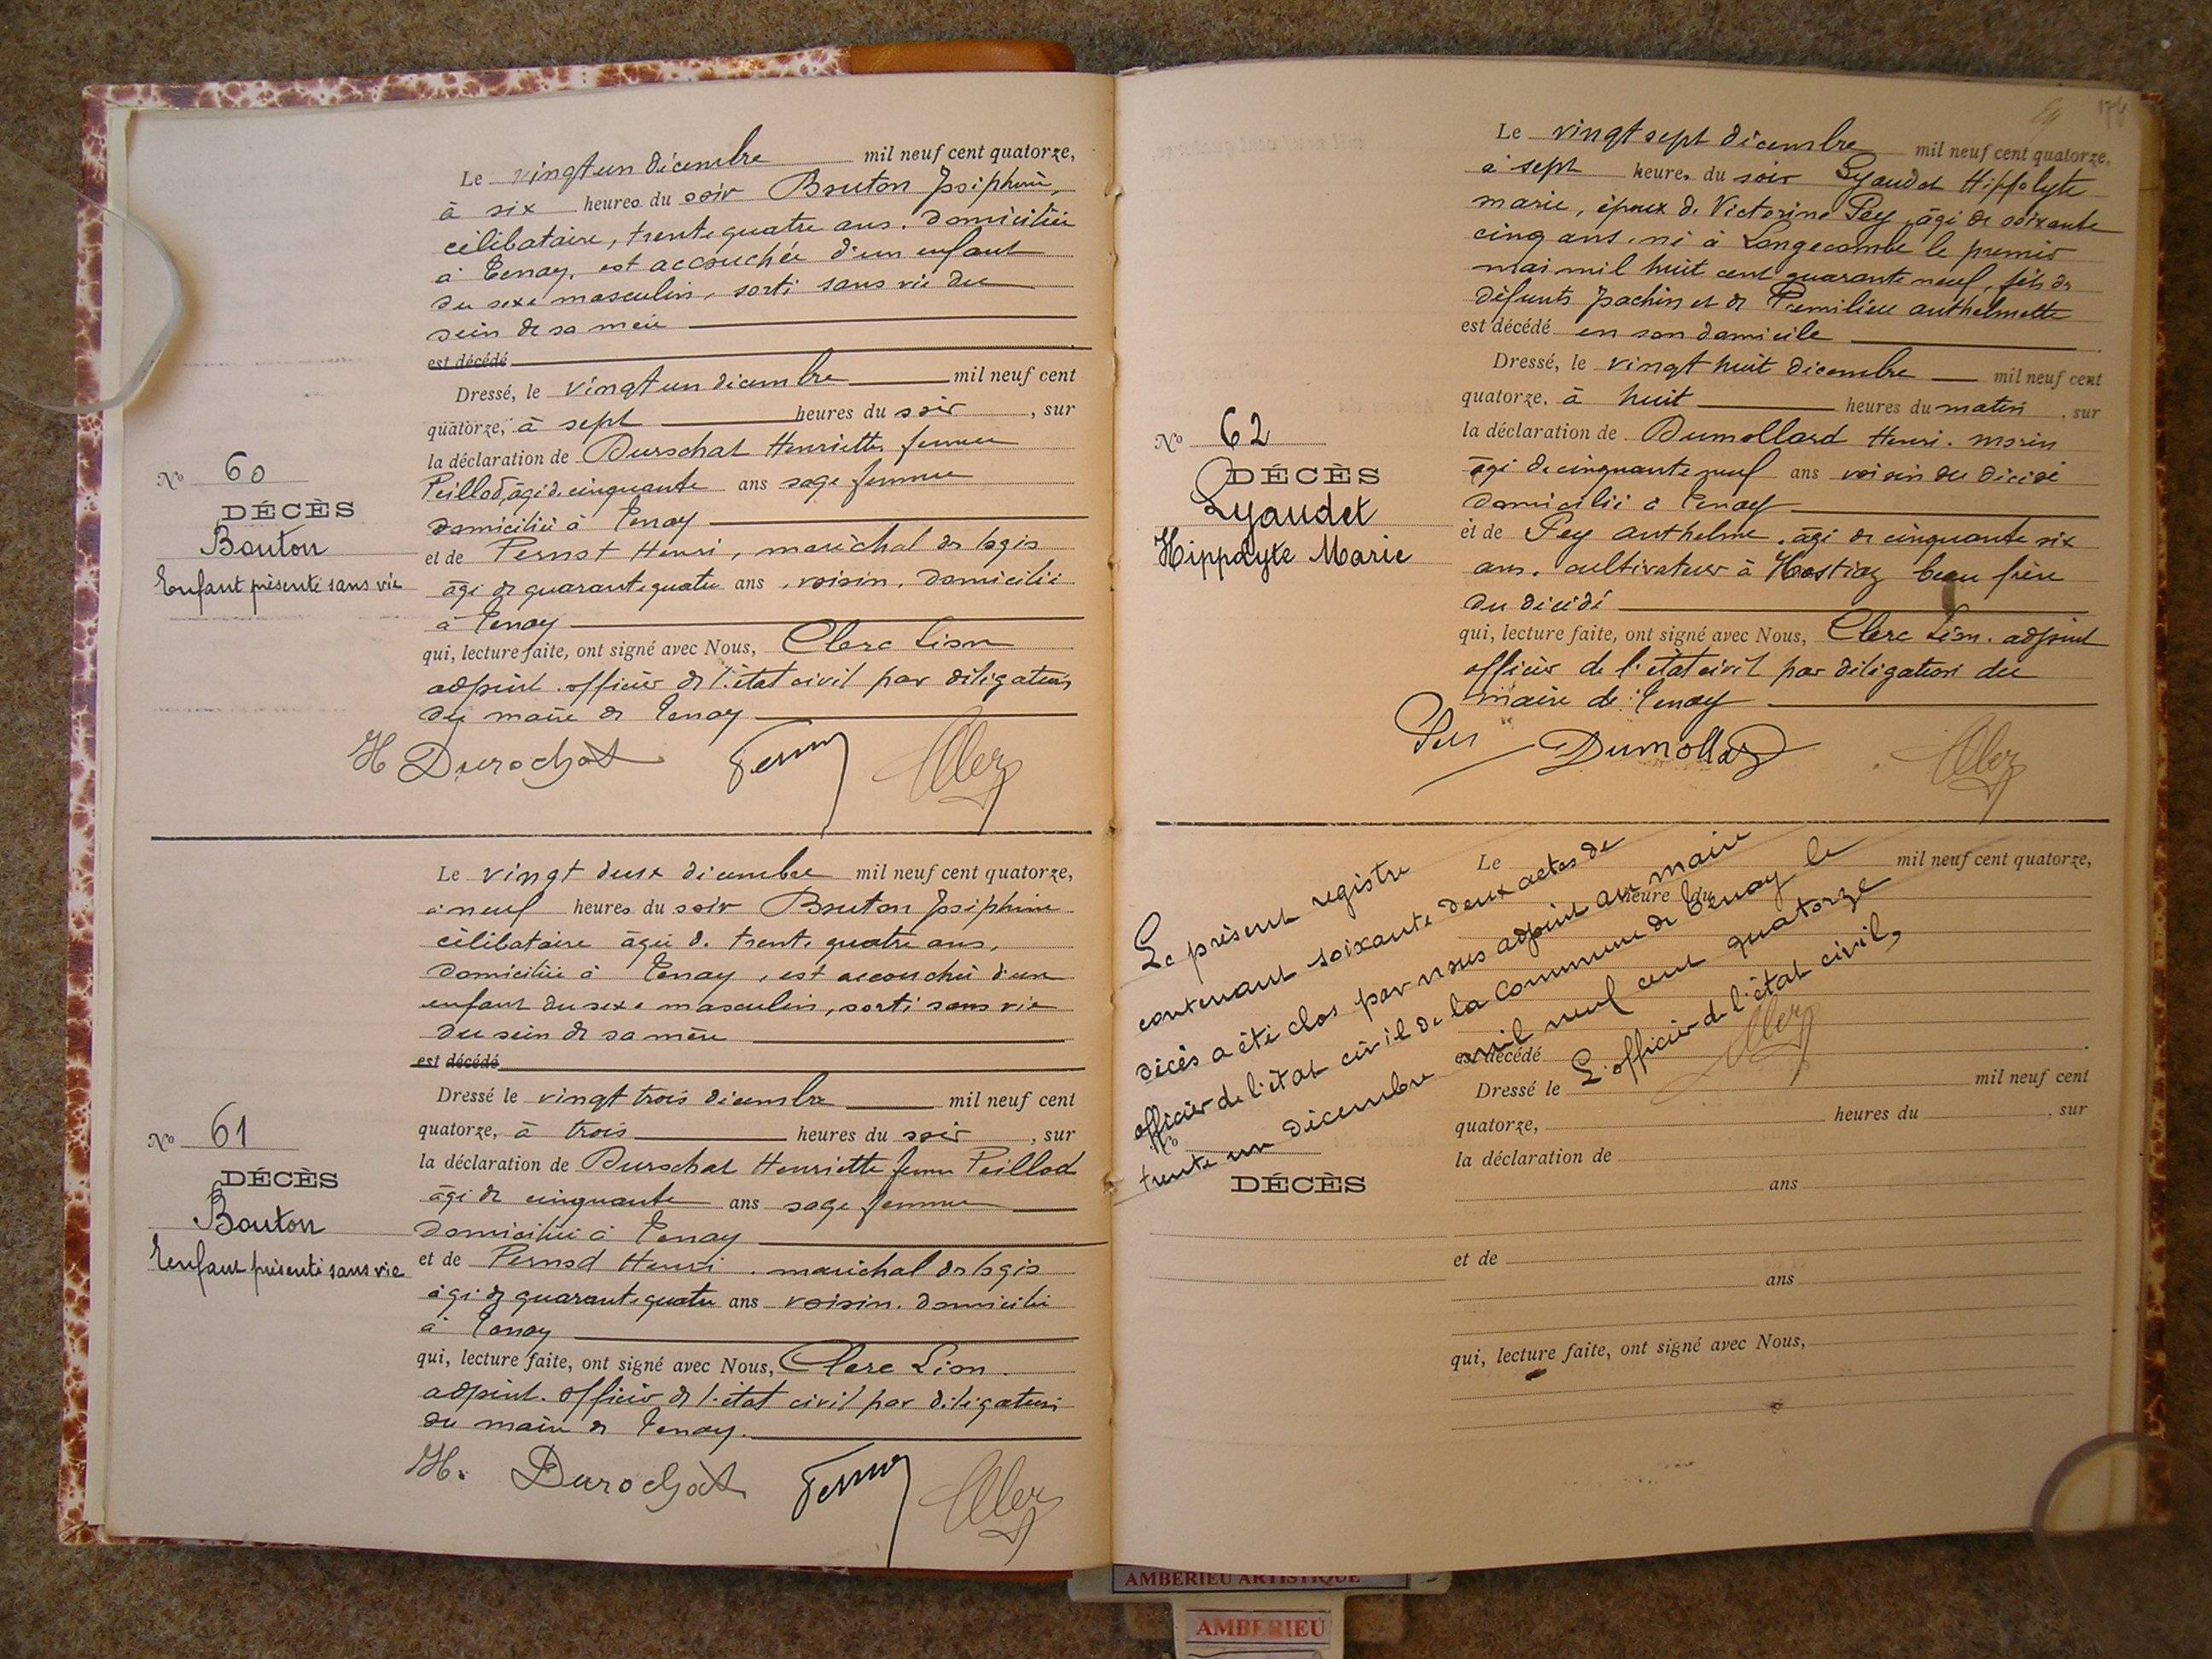 Le vingt un décembre mil neuf cent quatorze,
à six heures du soir Bouton Joséphine,
célibataire, trente quatre ans, domiciliée
à Tenay, est accouchée d'un enfant
du sexe masculin, sorti sans vie du
sein de sa mère
est décédé
Dressé, le vingt un décembre mil neuf cent
quatorze, à sept heures du soir, sur
la déclaration de Durochat Henriette femme
Peillod, âgé de cinquante ans sage femme
domiciliée à Tenay
et de Pernod Henri, maréchal des logis
âgé de quarante quatre ans, voisin, domicilié
à Tenay
qui, lecture faite, ont signé avec Nous, Clerc Léon
adjoint officier de l'état civil par délégation
du maire de Tenay
H Durochat
No 60
DÉCÈS
Bouton
Enfant présenté sans vie
Le vingt deux décembre mil neuf cent quatorze,
à neuf heures du soir Bouton Joséphine
célibataire âgée de trente quatre ans,
domiciliée à Tenay, est accouchée d'un
enfant du sexe masculin, sorti sans vie
du sein de sa mère
est décédé
Dressé le vingt trois décembre mil neuf cent
quatorze, à trois heures du soir, sur
la déclaration de Durochat Henriette femme Peillod
âgé de cinquante ans sage femme
domiciliée à Tenay
et de Pernod Henri, maréchal des logis
âgé de quarante quatre ans voisin, domicilié
à Tenay
qui, lecture faite, ont signé avec Nous, Clerc Léon.
adjoint officier de l'état civil par délégation
du maire de Tenay.
H. Durochat
No 61
DÉCÈS
Bouton
Enfant présenté sans vie
174
Le vingt sept décembre mil neuf cent quatorze,
à sept heures du soir Lyaudet Hippolyte
marie, époux de Victorine Pey, âgé de soixante
cinq ans, né à Longecombe le premier
mai mil huit cent quarante neuf, fils de
défunts Joachim et de Premilieu anthelmette
est décédé en son domicile
Dressé, le vingt huit décembre mil neuf cent
quatorze, à huit heures du matin, sur
la déclaration de Dumollard Henri, morin
âgé de cinquante neuf ans voisin du décédé
domicilié à Tenay
et de Pey anthelme, âgé de cinquante six
ans, cultivateur à Hostiaz beau frère
du décédé
qui, lecture faite, ont signé avec Nous, Clerc Léon. adjoint
officier de l'état civil par délégation du
maire de Tenay
Dumollard
No 62
DÉCÈS
Lyaudet
Hippolyte Marie
Le présent registre
contenant soixante deux actes de
décès a été clos par nous adjoint au maire
officier de l'état civil de la commune de Tenay le
trente un décembre mil neuf cent quatorze
L'officier de l'état civil,
Le mil neuf cent quatorze,
heure du
est décédé
Dressé le mil neuf cent
quatorze, heures du , sur
la déclaration de
ans
et de
ans
qui, lecture faite, ont signé avec Nous,
No
DÉCÈS
AMBERIEU ARTISTIQUE
AMBERIEU